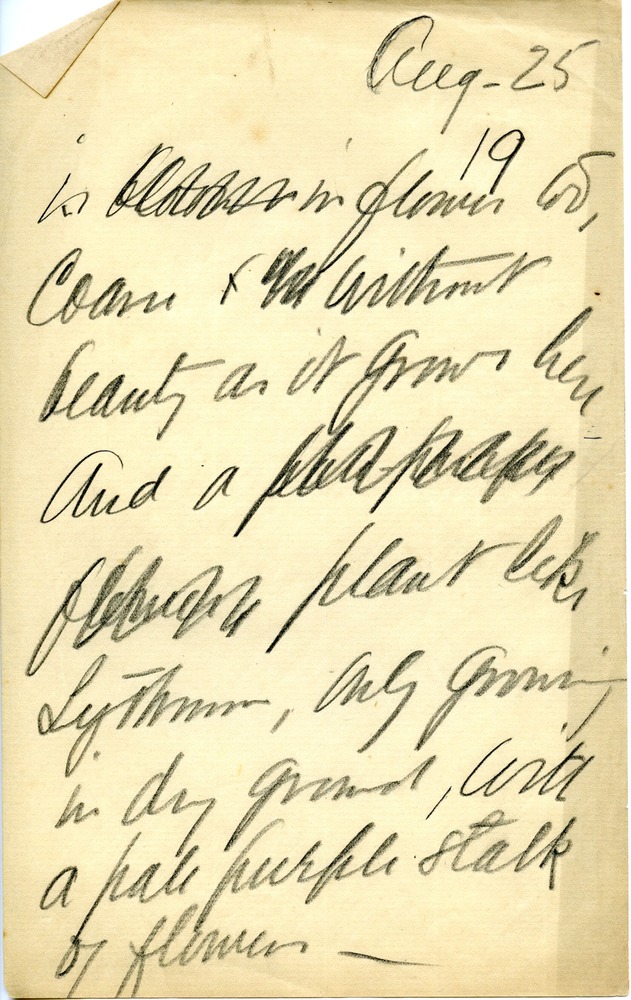 Aug - 25
19
is in flower too,
Coarse & without
beauty as it grows here
And a
plant like
Lythrum, only growing
in dry ground, with
a pale purple stalk
of flowers —